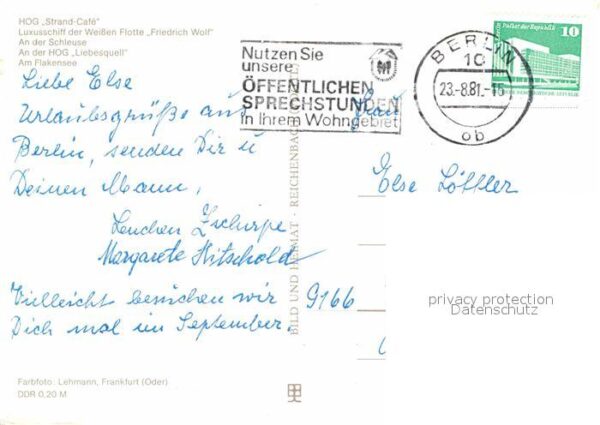 HOG „Strand-Café"
Luxusschiff der Weißen Flotte „Friedrich Wolf"
An der Schleuse
An der HOG „Liebesquell"
Am Flakensee
Liebe Else
Urlaubsgrüße aus
Berlin, senden Dir u
Deinen Mann,
Lenchen Zschirpe
Margarete Hitschold
Vielleicht besuchen wir
Dich mal im September.
Farbfoto: Lehmann, Frankfurt (Oder)
DDR 0,20 M
BILD UND HEIMAT · REICHENBACH
Nutzen Sie
unsere
ÖFFENTLICHEN
SPRECHSTUNDEN
in Ihrem Wohngebiet
BERLIN
10
23.-8.81.-16
ob
Palast der Republik
10
Frau
Else Löffler
9166
privacy protection
Datenschutz